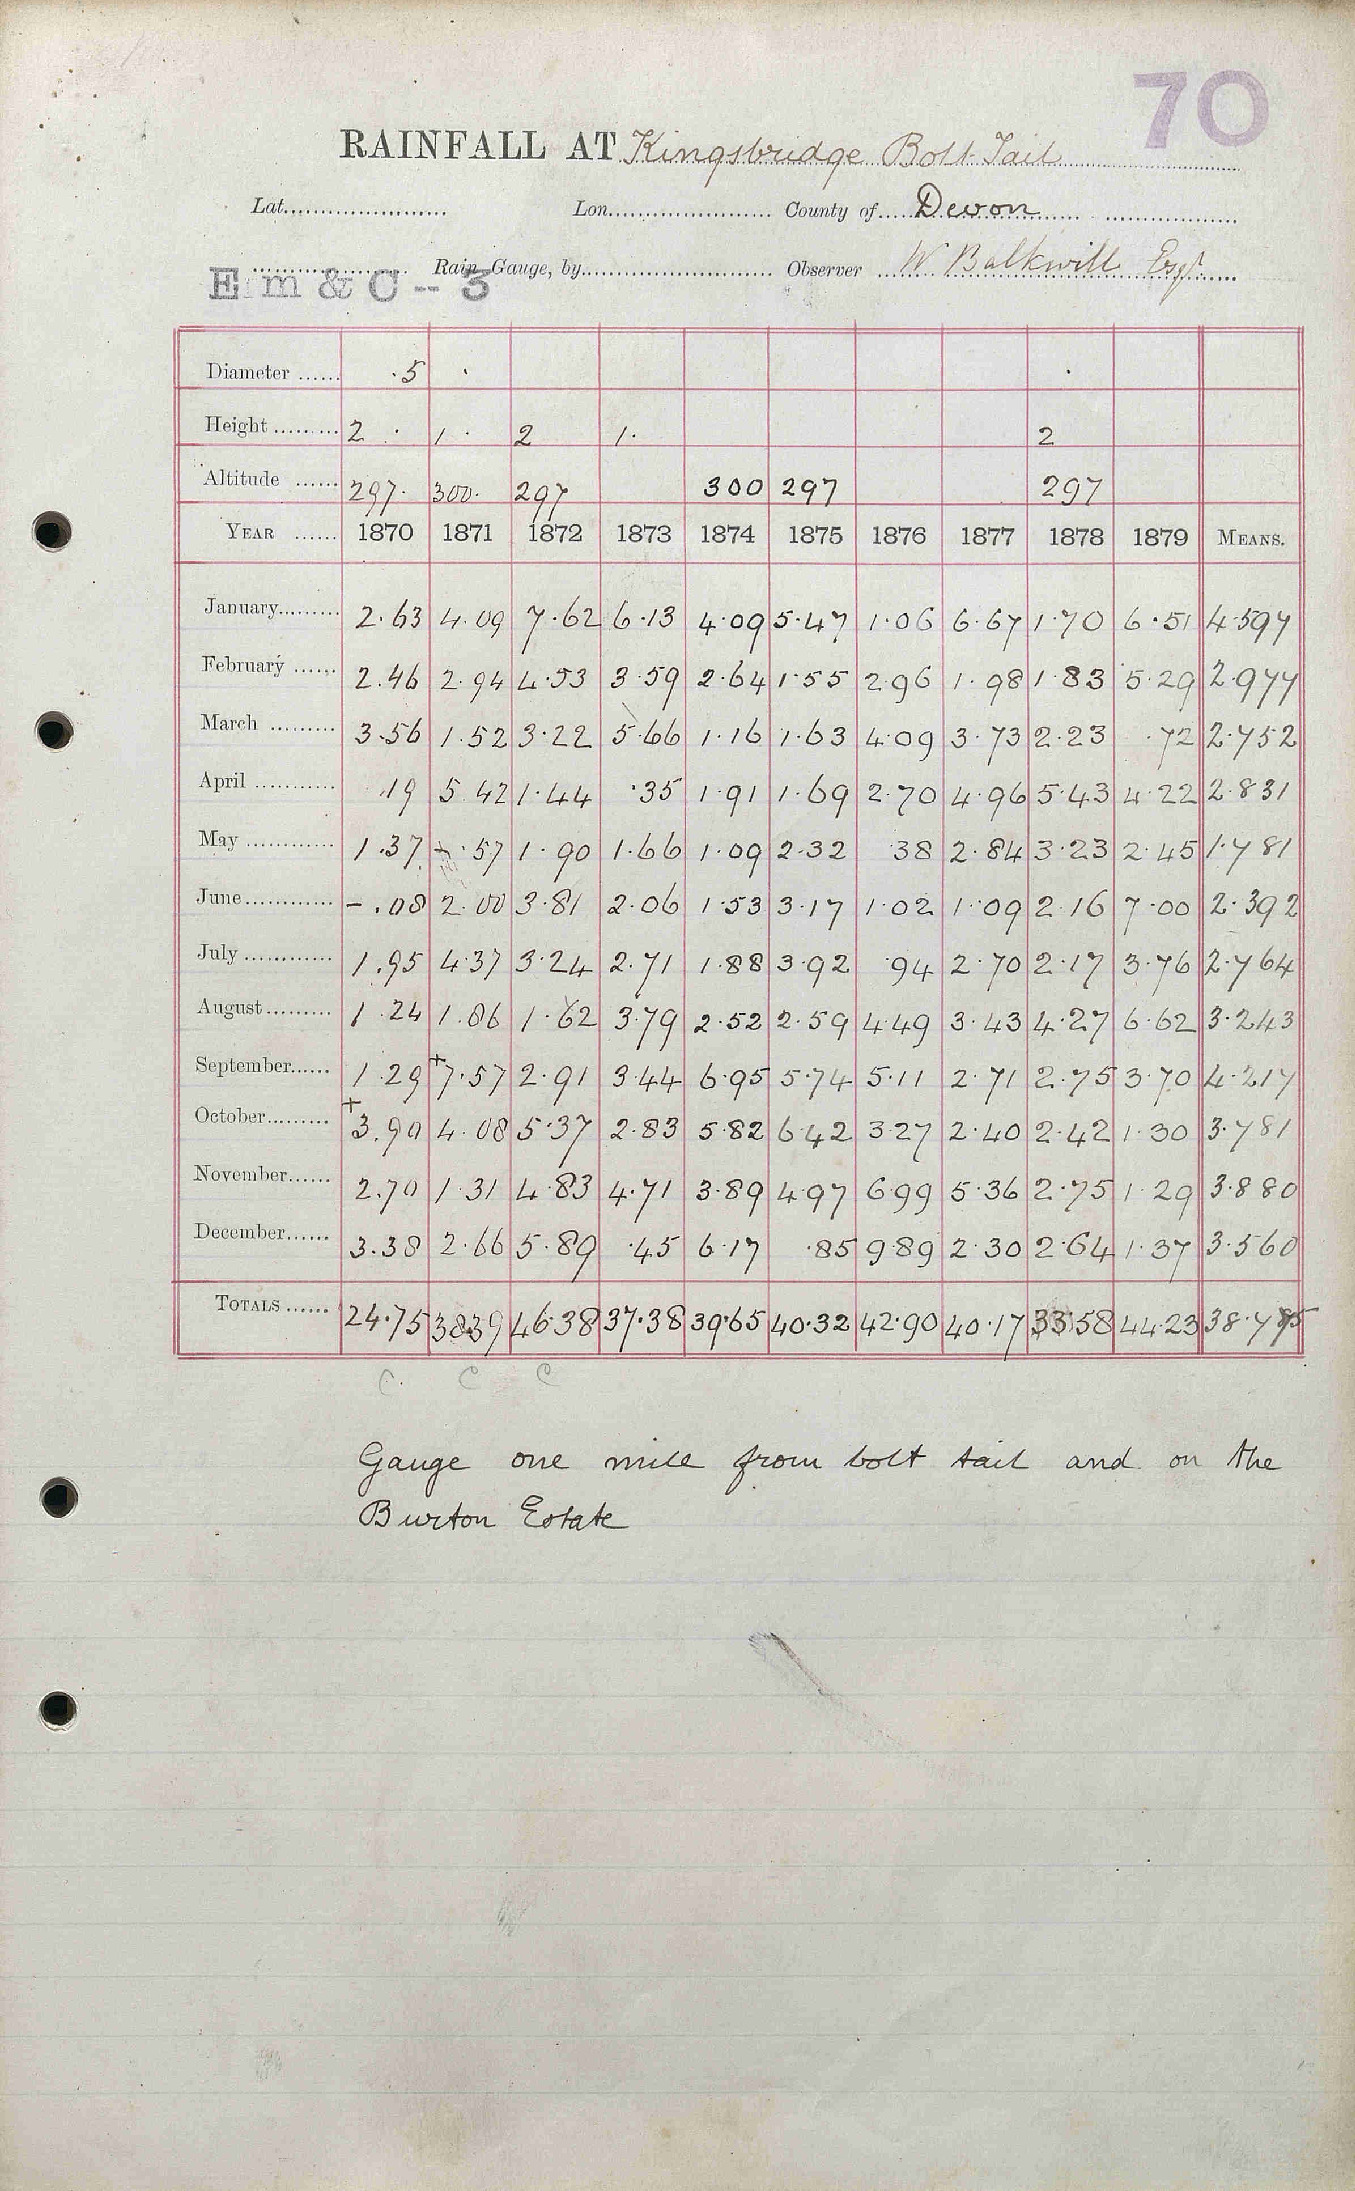 70
RAINFALL AT Kingsbridge Bolt Tail
Lat. Lon. County of Devon
Rain Gauge, by Observer W Balkwill Esqr
E m & C -- 3
Diameter ...... .5
Height ......... 2 1 2 1 2
Altitude ...... 297 300 297 300 297 297
YEAR ...... 1870 1871 1872 1873 1874 1875 1876 1877 1878 1879 MEANS.
January......... 2.63 4.09 7.62 6.13 4.09 5.47 1.06 6.67 1.70 6.51 4.597
February ...... 2.46 2.94 4.53 3.59 2.64 1.55 2.96 1.98 1.83 5.29 2.977
March ......... 3.56 1.52 3.22 5.66 1.16 1.63 4.09 3.73 2.23 .72 2.752
April ............ .19 5.42 1.44 .35 1.91 1.69 2.70 4.96 5.43 4.22 2.831
May ............ 1.37 - .57 1.90 1.66 1.09 2.32 .38 2.84 3.23 2.45 1.781
June............ - .08 2.00 3.81 2.06 1.53 3.17 1.02 1.09 2.16 7.00 2.392
July ............ 1.95 4.37 3.24 2.71 1.88 3.92 .94 2.70 2.17 3.76 2.764
August......... 1.24 1.86 1.62 3.79 2.52 2.59 4.49 3.43 4.27 6.62 3.243
September...... 1.29 +7.57 2.91 3.44 6.95 5.74 5.11 2.71 2.75 3.70 4.217
October......... +3.90 4.08 5.37 2.83 5.82 6.42 3.27 2.40 2.42 1.30 3.781
November...... 2.70 1.31 4.83 4.71 3.89 4.97 6.99 5.36 2.75 1.29 3.880
December...... 3.38 2.66 5.89 .45 6.17 .85 9.89 2.30 2.64 1.37 3.560
TOTALS ...... 24.75 38.39 46.38 37.38 39.65 40.32 42.90 40.17 33.58 44.23
C. C C
Gauge one mile from bolt tail and on the
Burton Estate